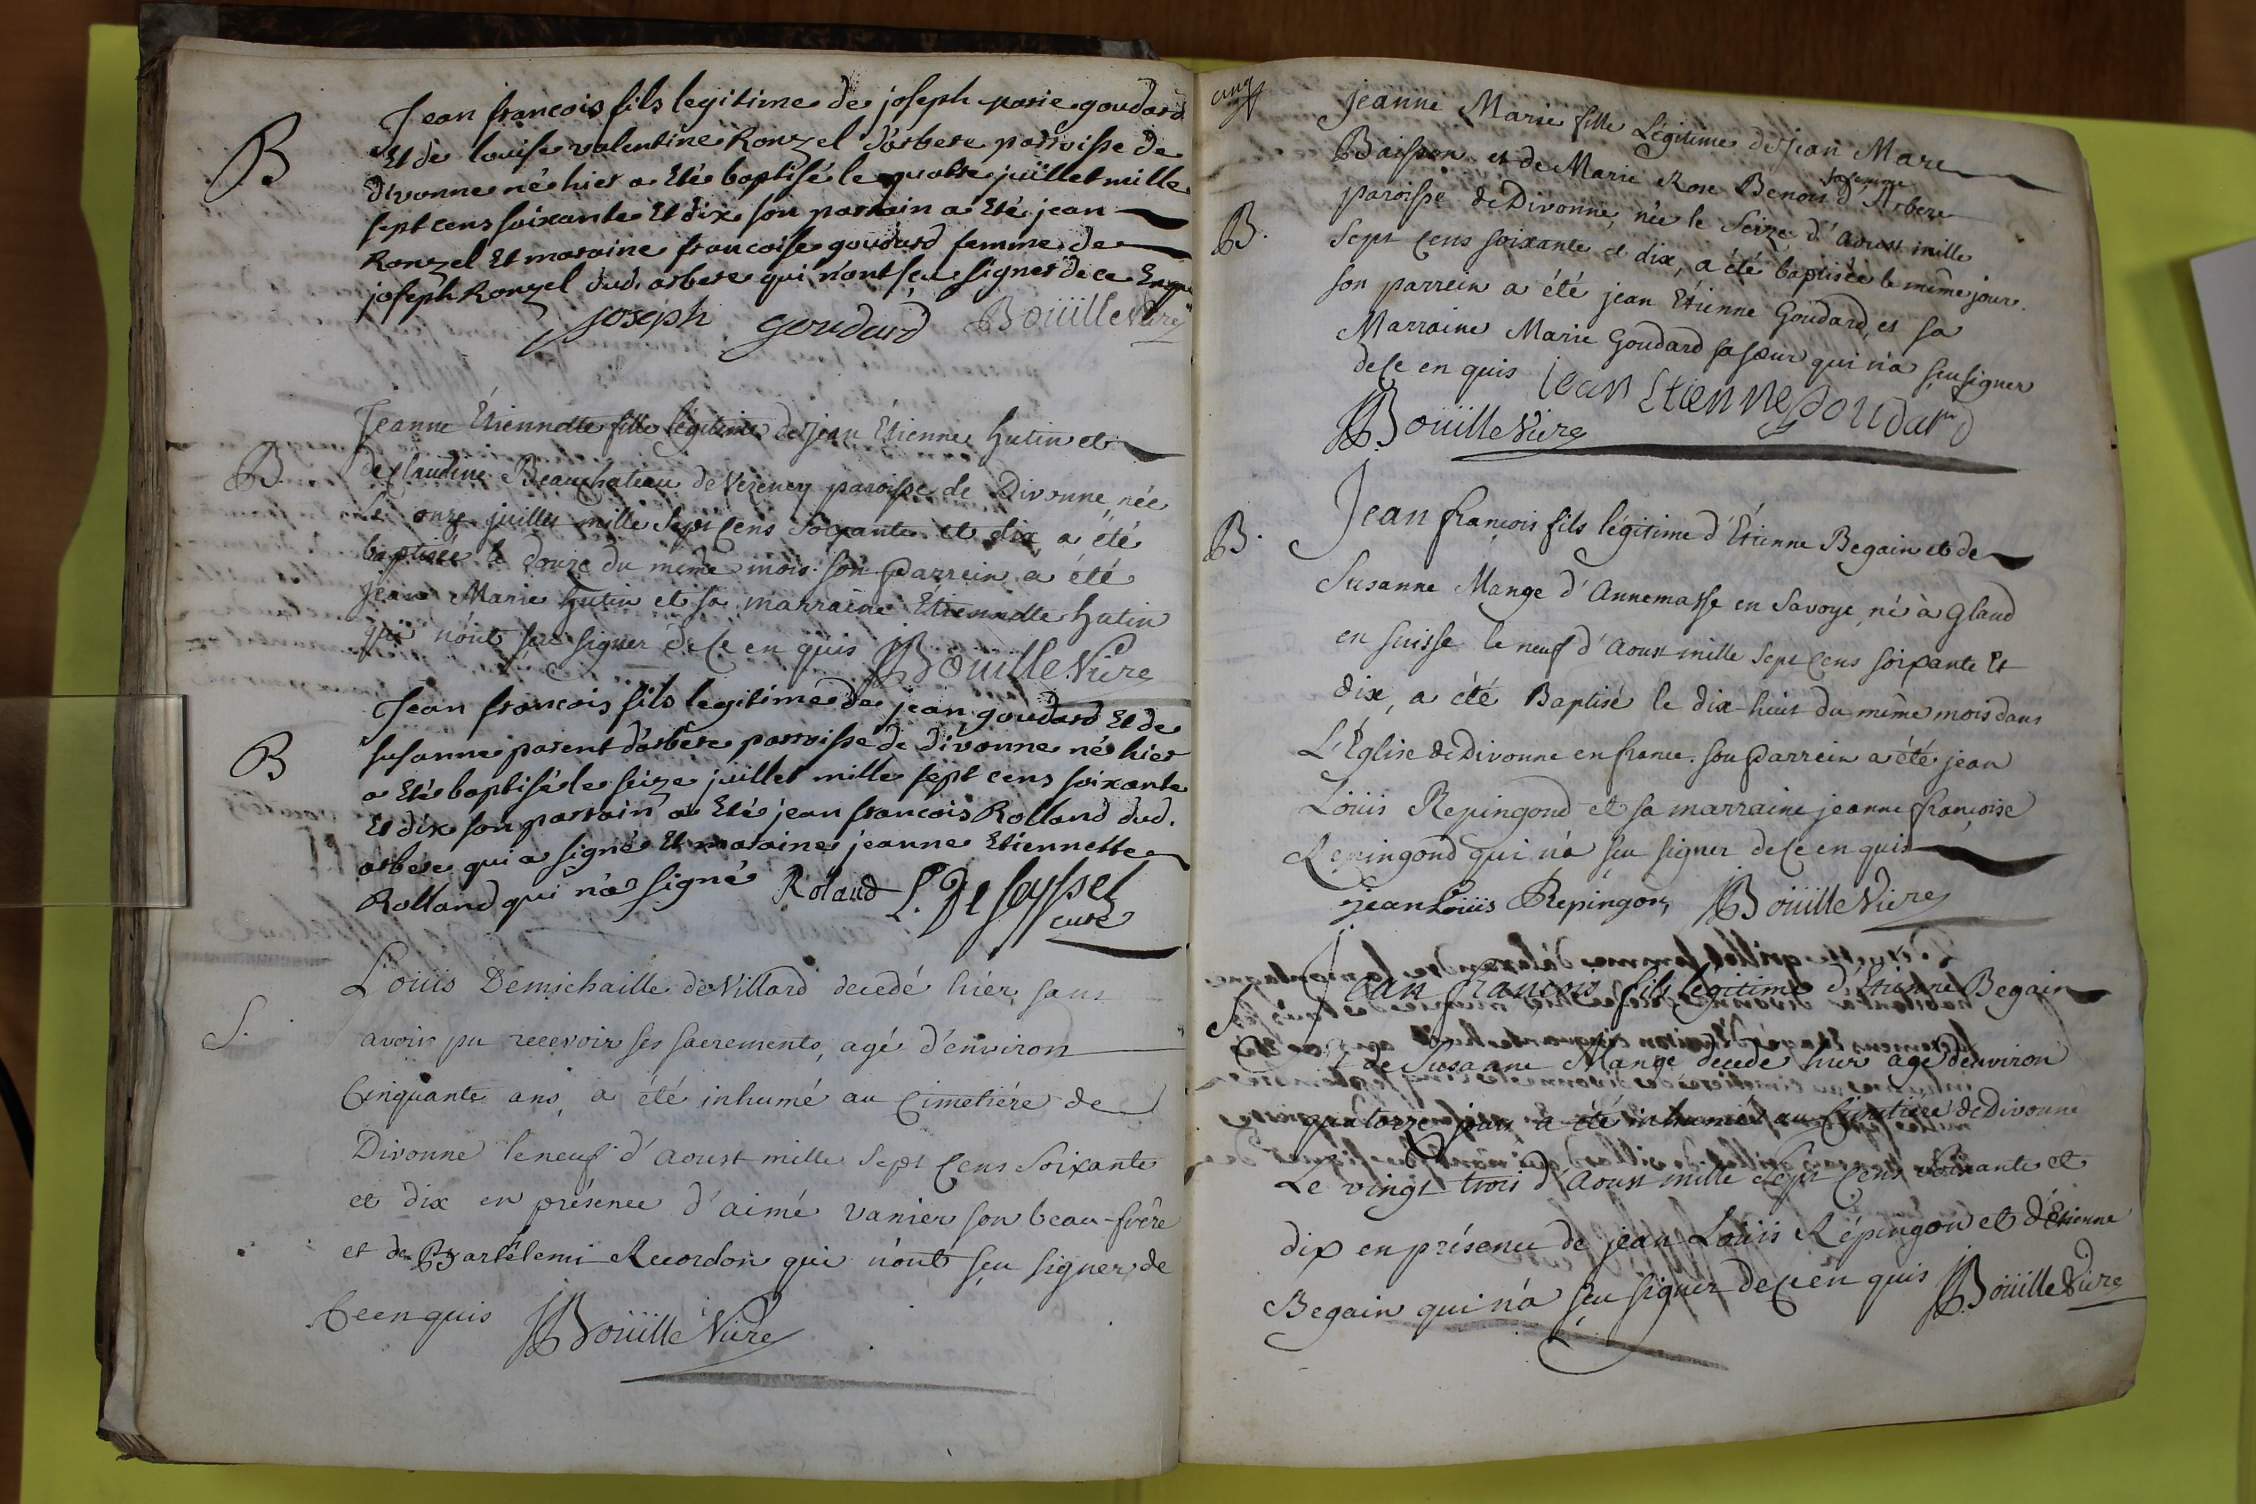 B
Jean francois fils legitime de joseph marie goudard
Et de louise valentine Ronzel d'arbere parroisse de
divonne né hier a Eté baptisé le quatre juillet mille
sept cens soixante Et dix son parrain a Eté jean
Ronzel Et maraine francoise goudard femme de
joseph Ronzel dud. arbere qui n'ont seu signer de ce Enquis
joseph goudard Boüille Vicre
B.
Jeanne Étiennette fille légitime de Jean Étienne Hutin et
de Claudine Beauchateau de Vesency paroisse de Divonne, née
le onze juillet mille Sept Cens Soixante et dix a été
baptisée le douze du même mois. son Parrein a été
Jean Marie Hutin et sa marraine Etiennette Hutin
qui n'ont seu signer de Ce en quis Boüille Vicre
B
Jean francois fils legitime de jean goudard Et de
susanne parent d'arbere parroisse de divonne né hier
a Eté baptisé le seize juillet mille sept cens soixante
Et dix son parrain a Eté jean francois Rolland dud.
arbere qui a signé Et maraine jeanne Etiennette
Rolland qui n'a signé Roland De Seyssel
curé
S.
Loüis Demichaille de Villard decedé hiér, sans
avoir pu recevoir ses sacrements, agé d'environ
Cinquante ans, a été inhumé au Cimetiére de
Divonne le neuf d'Aoust mille Sept Cens Soixante
et dix en présence d'aimé vanier son beau-frère
et de Bartélemi Recordon qui n'ont seu signer, de
Ce en quis Boüille Vicre
cinq
Jeanne Marie fille Légitime de Jean Marc
Baisson et de Marie Rose Benoit sa femme d'Arbere
paroisse de Divonne, née le Seize d'Aoust mille
B.
Sept Cens soixante et dix, a été baptisée le même jour.
son parrein a été jean Etienne Goudard, et sa
Marraine Marie Goudard sa sœur qui n'a seu signer
de Ce en quis jean Etienne goudard
Boüille Vicre
B.
Jean François fils légitime d'Étienne Begain et de
Susanne Mange d'Annemasse en Savoye, né à Gland
en suisse le neuf d'Aoust mille Sept Cens soixante Et
dix, a été Baptisé le dix-huit du même mois dans
L'Église de Divonne en france. son Parrein a été jean
Loüis Repingond et sa marraine jeanne françoise
Repingond qui n'a seu signer de Ce en quis
jean Loüis Repingon, Boüille Vicre
S.
Jean François fils légitime d'Étienne Begain
et de Susanne Mange decede hier agé d'environ
quatorze jours a été inhumé au Cimetiére de Divonne
Le vingt trois d'Aoust mille Sept Cens Soixante et
dix en présence de jean Loüis Répingon et d'Étienne
Begain qui n'a seu signer de Ce en quis Boüille Vicre